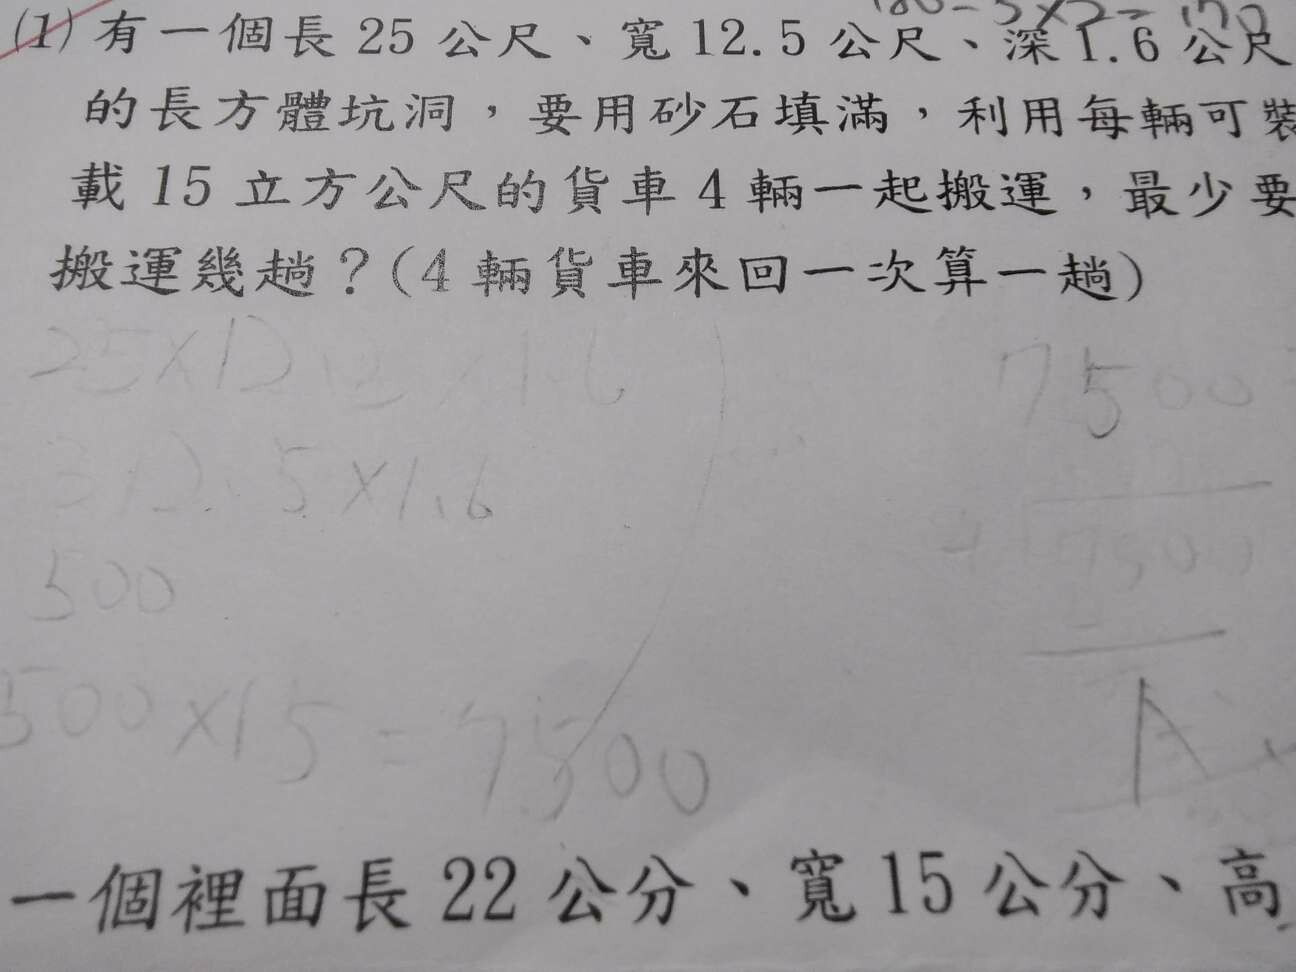 180-5×2=170
(1) 有一個長 25 公尺、寬 12.5 公尺、深 1.6 公尺
的長方體坑洞，要用砂石填滿，利用每輛可裝
載 15 立方公尺的貨車 4 輛一起搬運，最少要
搬運幾趟？(4 輛貨車來回一次算一趟)
25×12.5×1.6
312.5×1.6
500
500×15=7500
7500
7500
A
一個裡面長 22 公分、寬 15 公分、高